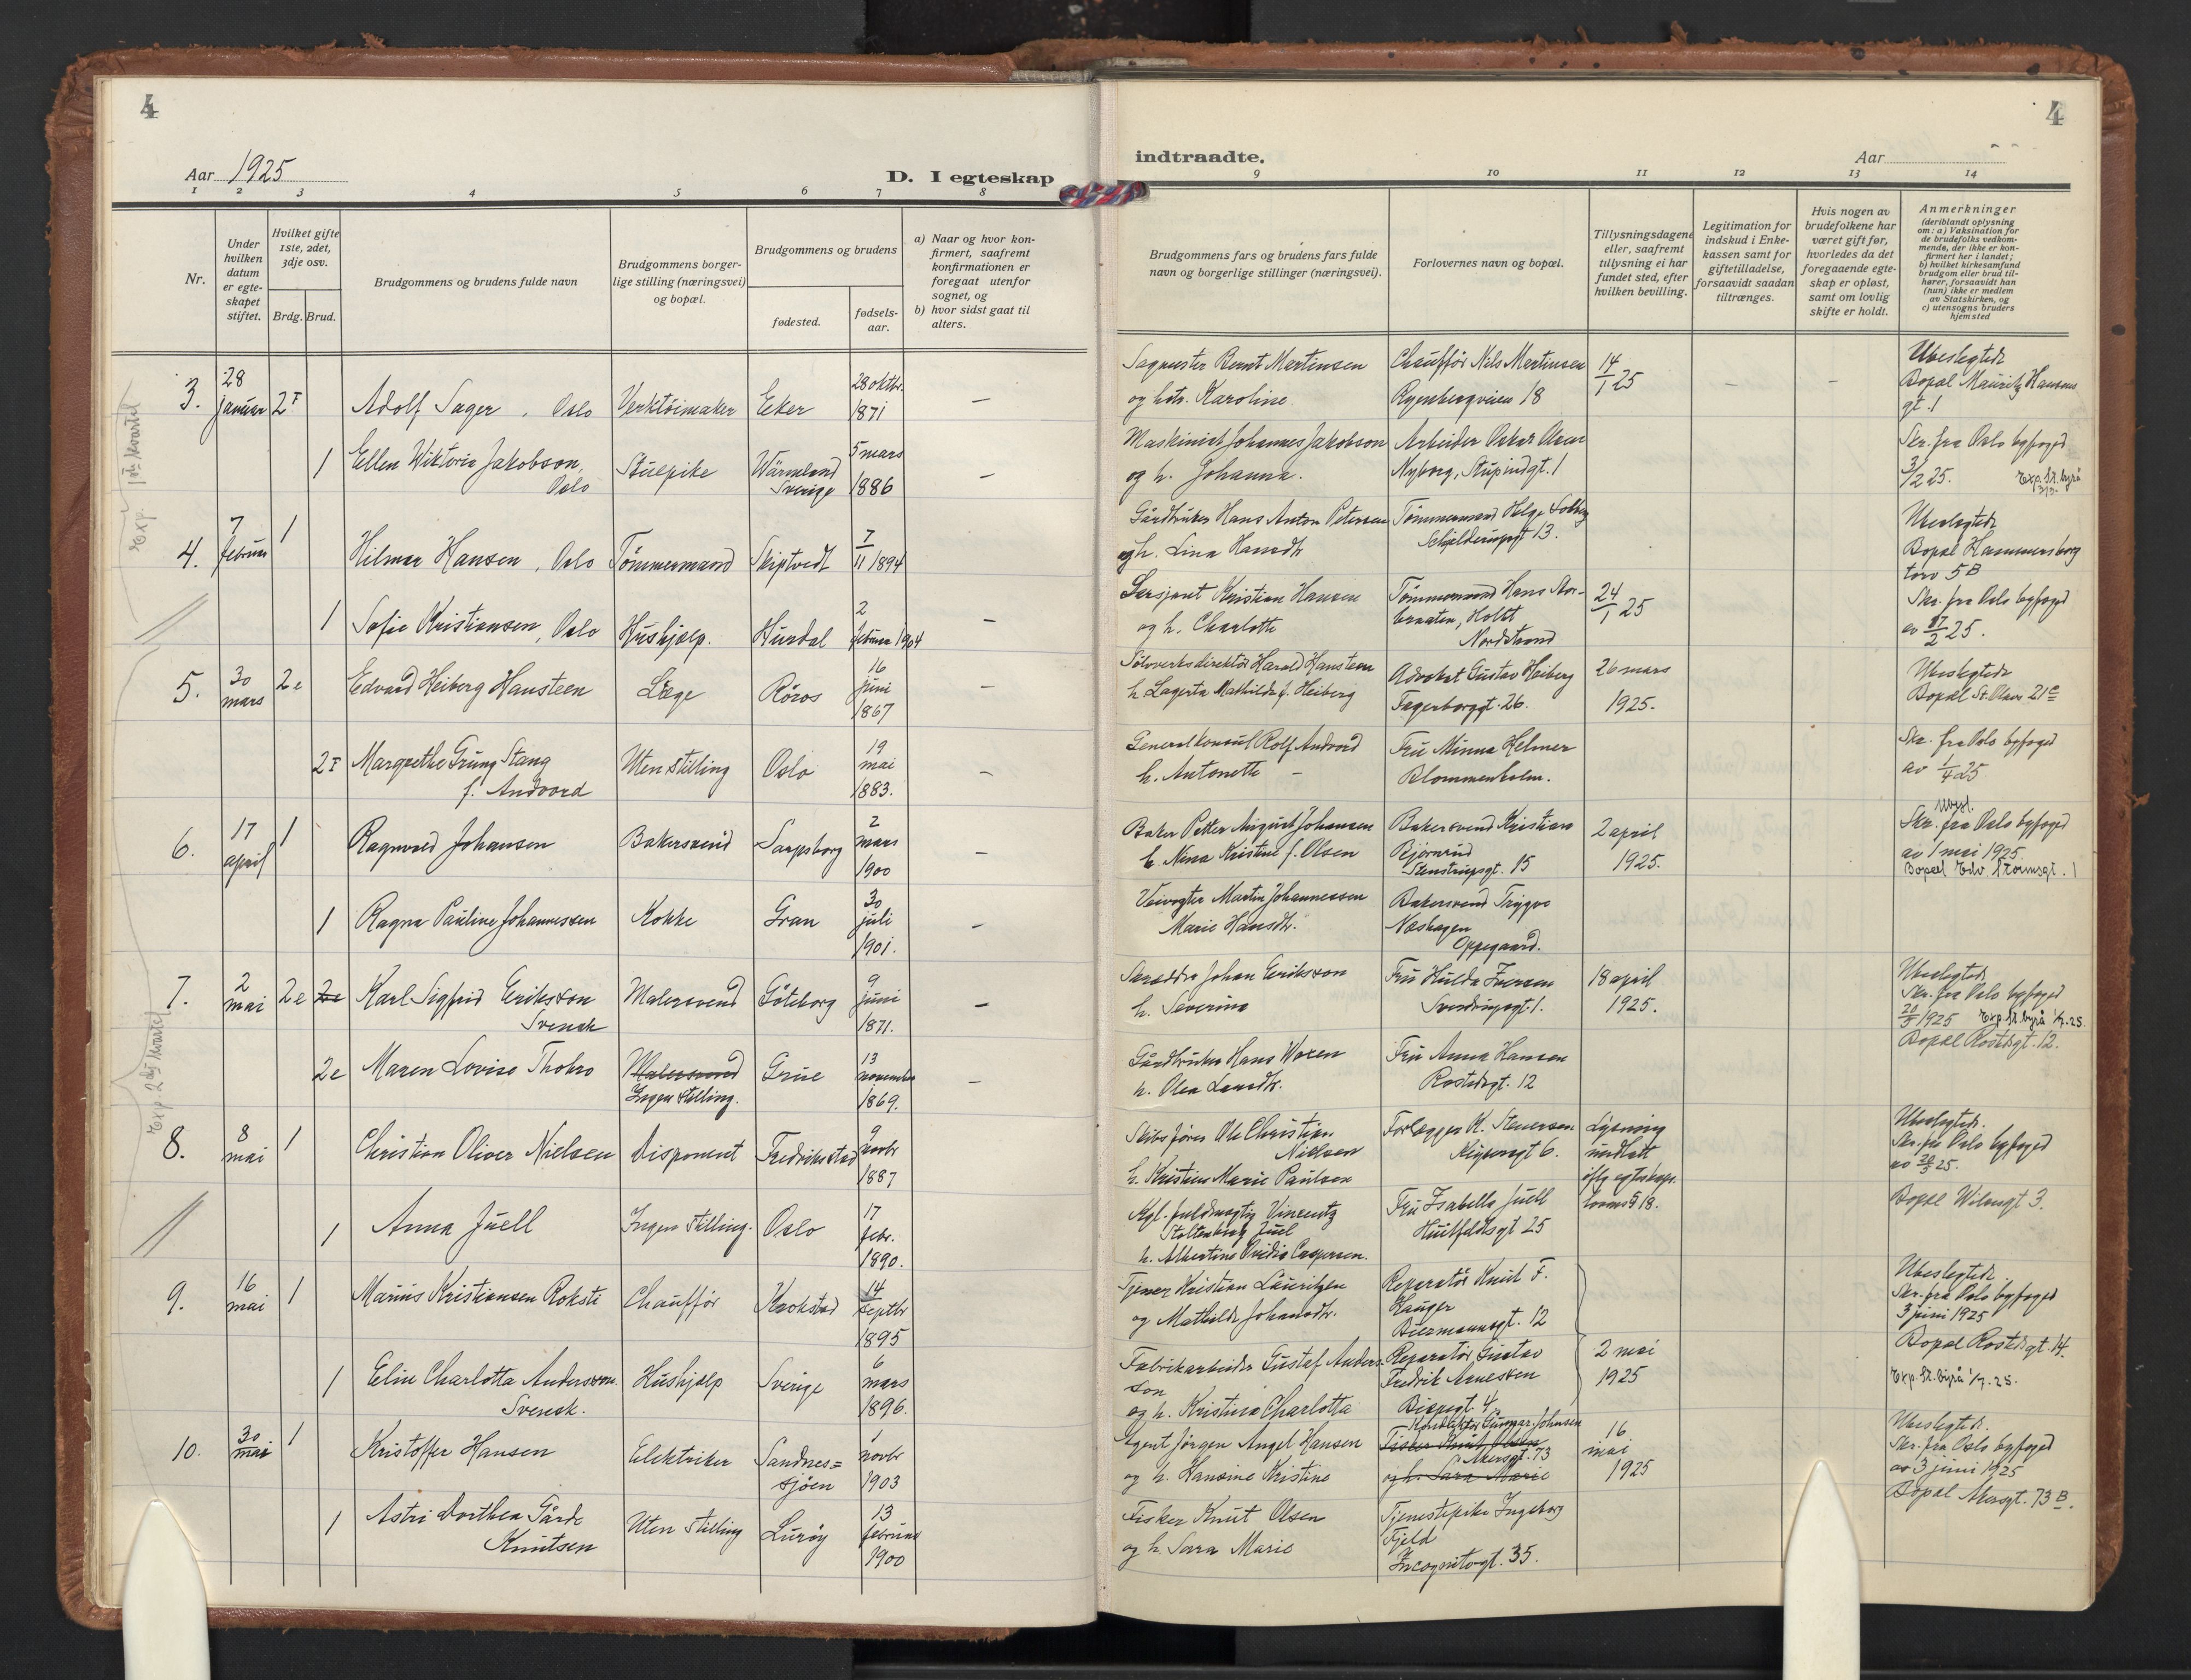 4
Aar 1925
D. I egteskap
1 2 3 4 5 6 7 8
Nr.
Under hvilken datum er egteskapet stiftet.
Hvilket gifte 1ste, 2det, 3dje osv.
Brdg. Brud.
Brudgommens og brudens fulde navn
Brudgommens borgerlige stilling (næringsvei) og bopæl.
Brudgommens og brudens
fødested.
fødselsaar.
a) Naar og hvor konfirmert, saafremt konfirmationen er foregaat utenfor sognet, og
b) hvor sidst gaat til alters.
3. 28 januar 2 Adolf Sager, Oslo Verktöimaker Eker 28 oktbr. 1871 –
1 Ellen Wiktoria Jakobson, Oslo Stuepike Wärmland Sverige 5 mars 1886 –
4. 7 februar 1 Hilmar Hansen, Oslo Tömmermand Skiptvedt 7/11 1894
1 Sofie Kristiansen, Oslo Hushjælp. Hurdal 2 februar 1904 –
5. 30 mars 2e Edvard Heiberg Hansteen Læge Röros 16 juni 1867 –
2 Margrethe Grung Stang f. Andvord Uten stilling Oslo 19 mai 1883. –
6. 17 april 1 Ragnvald Johansen Bakersvend Sarpsborg 2 mars 1900 –
1 Ragna Pauline Johannessen Kokke Gran 30 juli 1901. –
7. 2 mai 2e 2e Karl Sigfrid Eriksson Svensk Malersvend Göteborg 9 juni 1871. –
2e Maren Lovise Thokro Malersvend Ingen stilling. Grue 13 november 1869. –
8. 8 mai 1 Christian Oliver Nielsen Disponent Fredriksstad 9 novbr 1887
1 Anna Juell Ingen stilling. Oslo 17 febr. 1890.
9. 16 mai 1 Marius Kristiansen Chaufför Krokstad 14 septbr 1895
1 Elin Charlotta Andersson. Svensk. Hushjælp Sverige 6 mars 1896.
10. 30 mai 1 Kristoffer Hansen Elektriker Sandnes=sjöen 1 novbr 1903
1 Astri Dorthea Gårde Knutsen Uten stilling Luröy 13 februar 1900
Exp. 1ste kvartal
Exp. 2det kvartal
4
indtraadte.
Aar
9 10 11 12 13 14
Brudgommens fars og brudens fars fulde navn og borgerlige stillinger (næringsvei).
Forlovernes navn og bopæl.
Tillysningsdagene eller, saafremt tillysning ei har fundet sted, efter hvilken bevilling.
Legitimation for indskud i Enkekassen samt for giftetilladelse, forsaavidt saadan tiltrænges.
Hvis nogen av brudefolkene har været gift før, hvorledes da det foregaaende egteskap er opløst, samt om lovlig skifte er holdt.
Anmerkninger
(deriblandt oplysning om: a) Vaksination for de brudefolks vedkommende, der ikke er konfirmert her i landet; b) hvilket kirkesamfund brudgom eller brud tilhører, forsaavidt han (hun) ikke er medlem av Statskirken, og c) utensogns bruders hjemsted
Sagmester Bernt Martinsen
og hstr. Karoline
Chaufför Nils Martinsen
Ryenbergveien 18
14/1 25
– –
Ubeslegtede
Bopæl Mauritz Hansens gt. 1
Maskinist Johannes Jakobson
og h. Johanna.
Arbeider Oskar
Nyborg, Stupindgt. 1
Skr. fra Oslo byfoged
3/2 25. Exp. St. byrå
Gårdbruker Hans Anton Petersen
og h. Lina Hansdtr
Tömmermand Helge Solberg
Schjelderupsgt 13.
Ubeslegtede
Bopæl Hammersborg
torv 5B
Sersjant Kristian Hansen
og h. Charlotte
Tömmermand Hans Storbraaten, Holtet
Nordstrand
24/1 25
Skr. fra Oslo byfoged
av 17/2 25.
Sölvverksdirektör Harald Hansteen
h. Lagerta Mathilde f. Heiberg
Advokat Gustav Heiberg
Fagerborggt. 26.
26 mars
1925.
Ubeslegtede
Bopæl St. Olavs 21c
Generalkonsul Rolf Andvord
h. Antonette –
Fru Minna Helmer
Blommenholm.
Skr. fra Oslo byfoged
av 1/4 25
Baker Petter August Johansen
h. Nina Kristine f. Olsen
Bakersvend Kristian
Björnrud
Stenstrupsgt. 15
2 april
1925.
Ubesl.
Skr. fra Oslo byfoged
av 1 mai 1925.
Bopæl Edv Stormsgt. 1
Veivogter Martin Johannessen
Marie Hansdtr.
Bakersvend Trygve
Næshagen
Oppegaard.
Skrædder Johan Eriksson
h. Severina
Fru Hulda Iversen
Sverdrupsgt. 1.
18 april
1925.
Ubeslegtede
Skr. fra Oslo byfoged
20/5 1925 Exp. St. byrå 1/7. 25.
Bopæl Rostedsgt. 12.
Gårdbruker Hans
h. Olea Larsdtr.
Fru Anna Hansen
Rostedsgt. 12
Skibsförer Ole Christian
Nielsen
h. Kristine Marie Paulsen
Forlægger K. Steuersen
Keysersgt 6.
Lysning
undlatt
iflg egteskaps-
lovens § 18.
Ubeslegtede.
Skr. fra Oslo byfoged
av 20/5 25.
Kgl. fuldmægtig Vincentz
Stoltenberg Juel
h. Albertine Ovidia Caspersen.
Fru Isabella Juell
Huitfeldtsgt 25
Bopæl Wilsesgt 3.
Tjener Kristian Lauritzen
og Mathilde Johansdtr.
Reparatör Knut F.
Hauger
Biermannsgt. 12
Ubeslegtede
Skr. fra Oslo byfoged
3 juni 1925
Bopæl Rostedsgt. 14.
Fabrikarbeider Gustaf Andersson
og h. Kristina Charlotta
Reparatör Gustav
Fredrik Arnessen
Bispegt. 4.
2 mai
1925
Exp. St. byrå 1/7. 25.
Agent Jörgen Angel Hansen
og h. Hansine Kristine
Konduktör Gunnar Johnsen
Fisker Knut Olsen
Akersgt. 73
og h. Sara Marie
16
mai
1925
Ubeslegtede.
Skr. fra Oslo byfoged
av 3 juni 1925
Bopæl Akersgt. 73 B.
Fisker Knut Olsen
og h. Sara Marie
Tjenestepike Ingeborg
Fjeld
Incognitogt. 35.